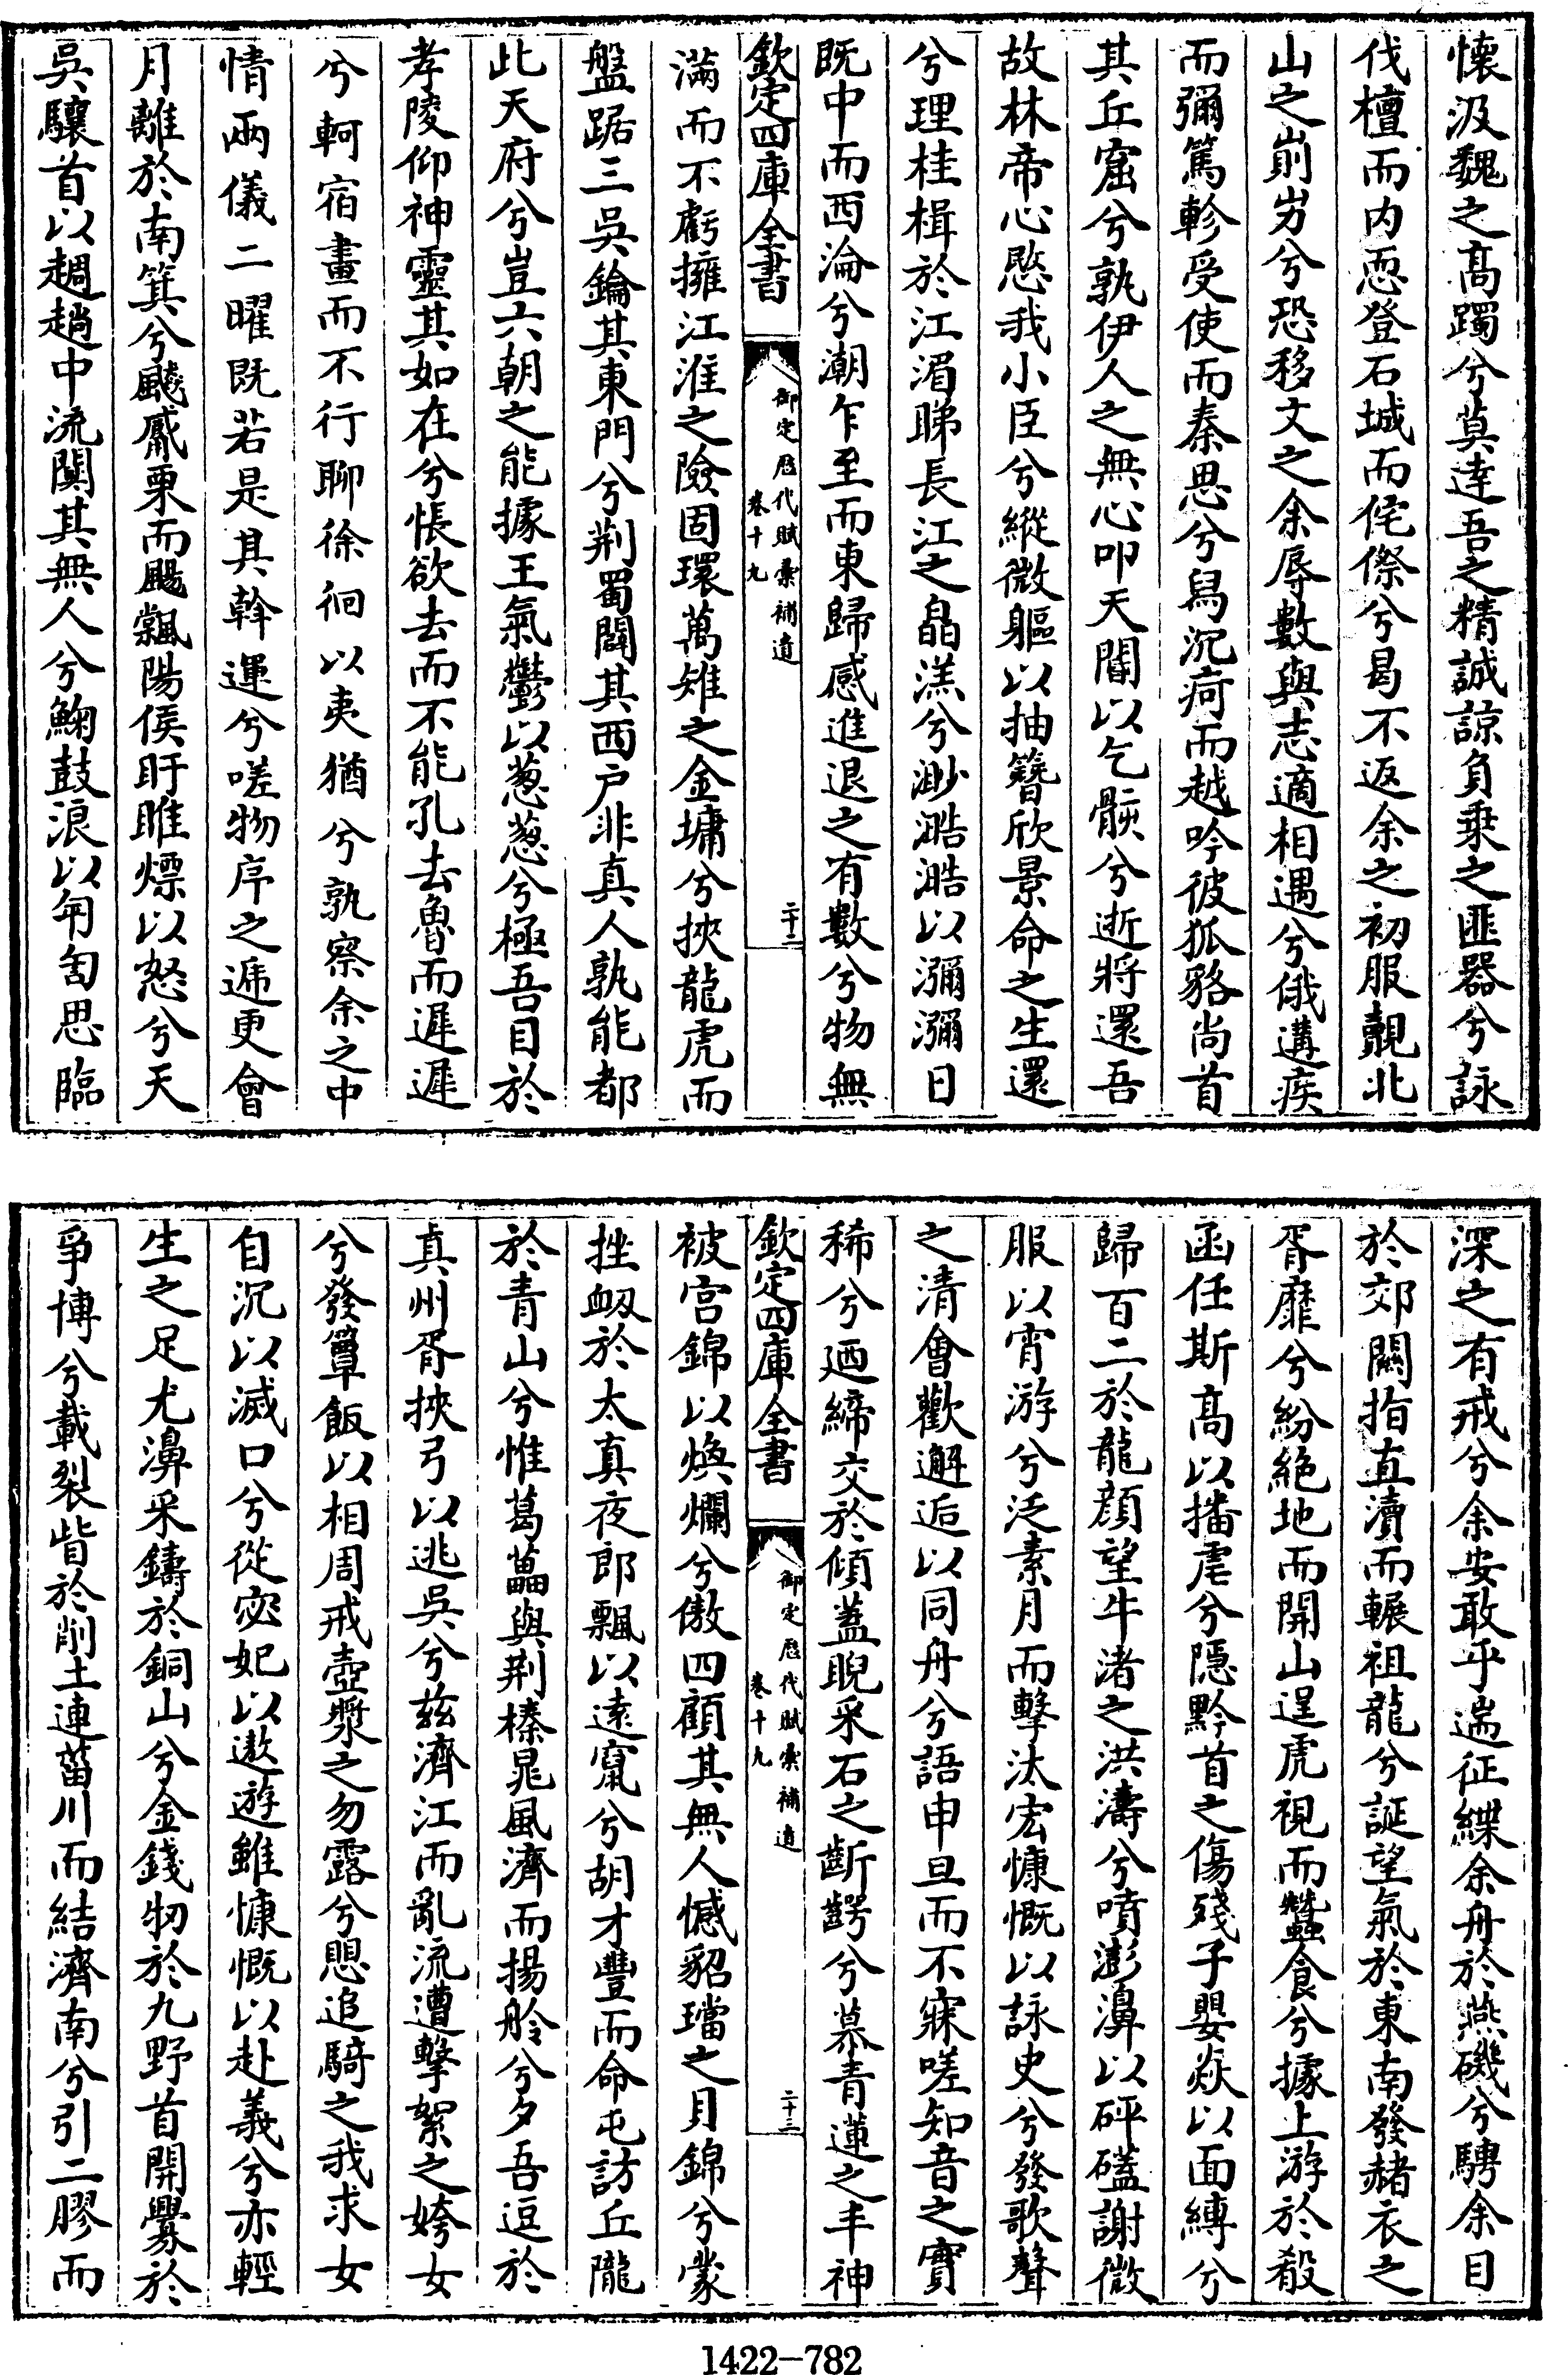 懷汲魏之髙躅兮莫達吾之精誠諒負乗之匪器兮詠
伐檀而内恧登石城而侘傺兮曷不返余之初服覿北
山之崱屴兮恐移文之余辱數與志適相遇兮俄遘疾
而彌篤軫受使而秦思兮舄沉疴而越吟彼狐貉尚首
其丘窟兮孰伊人之無心叩天閽以乞骸兮逝將還吾
故林帝心愍我小臣兮縱微軀以抽簪欣景命之生還
兮理桂楫於江湄睇長江之晶溔兮渺澔澔以瀰瀰日
既中而西淪兮潮乍至而東歸感進退之有數兮物無
欽定四庫全書
御定歴代賦彚補遺
卷十九
二十二
滿而不虧擁江淮之險固環萬雉之金墉兮挾龍虎而
盤踞三吳鑰其東門兮荆蜀闢其西户非真人孰能都
此天府兮豈六朝之能據王氣鬱以葱葱兮極吾目於
孝陵仰神靈其如在兮悵欲去而不能孔去魯而遲遲
兮軻宿晝而不行聊徐徊以夷猶兮孰察余之中
情兩儀二曜既若是其斡運兮嗟物序之遞更會
月離於南箕兮飉觱栗而颺飄陽侯盱睢熛以怒兮天
吳驤首以趯趫中流闃其無人兮鞠鼓浪以匍匐思臨
深之有戒兮余安敢乎遄征緤余舟於燕磯兮騁余目
於郊闗指直瀆而輾祖龍兮誕望氣於東南發赭衣之
胥靡兮紛絶地而開山逞虎視而蠶食兮據上游於殽
函任斯髙以播虐兮隠黔首之傷殘子嬰焱以面縛兮
歸百二於龍顔望牛渚之洪濤兮噴澎濞以砰磕謝微
服以宵游兮泛素月而擊汰宏慷慨以詠史兮發歌聲
之清會歡邂逅以同舟兮語申旦而不寐嗟知音之實
稀兮廼締交於傾蓋睨采石之齗齶兮慕青蓮之丰神
欽定四庫全書
御定歴代賦彚補遺
卷十九
二十三
被宫錦以焕爛兮傲四顧其無人憾貂璫之貝錦兮蒙
挫衂於太真夜郎飄以遠竄兮胡才豐而命屯訪丘隴
於青山兮惟葛藟與荆榛晁風濟而揚舲兮夕吾逗於
真州胥挾弓以逃吳兮兹濟江而亂流遭擊絮之姱女
兮發簞飯以相周戒壺漿之勿露兮愳追騎之我求女
自沉以滅口兮從宓妃以遨遊雖慷慨以赴義兮亦輕
生之足尤濞采鑄於銅山兮金錢牣於九野首開釁於
爭博兮載裂眥於削土連菑川而結濟南兮引二膠而
1422-782